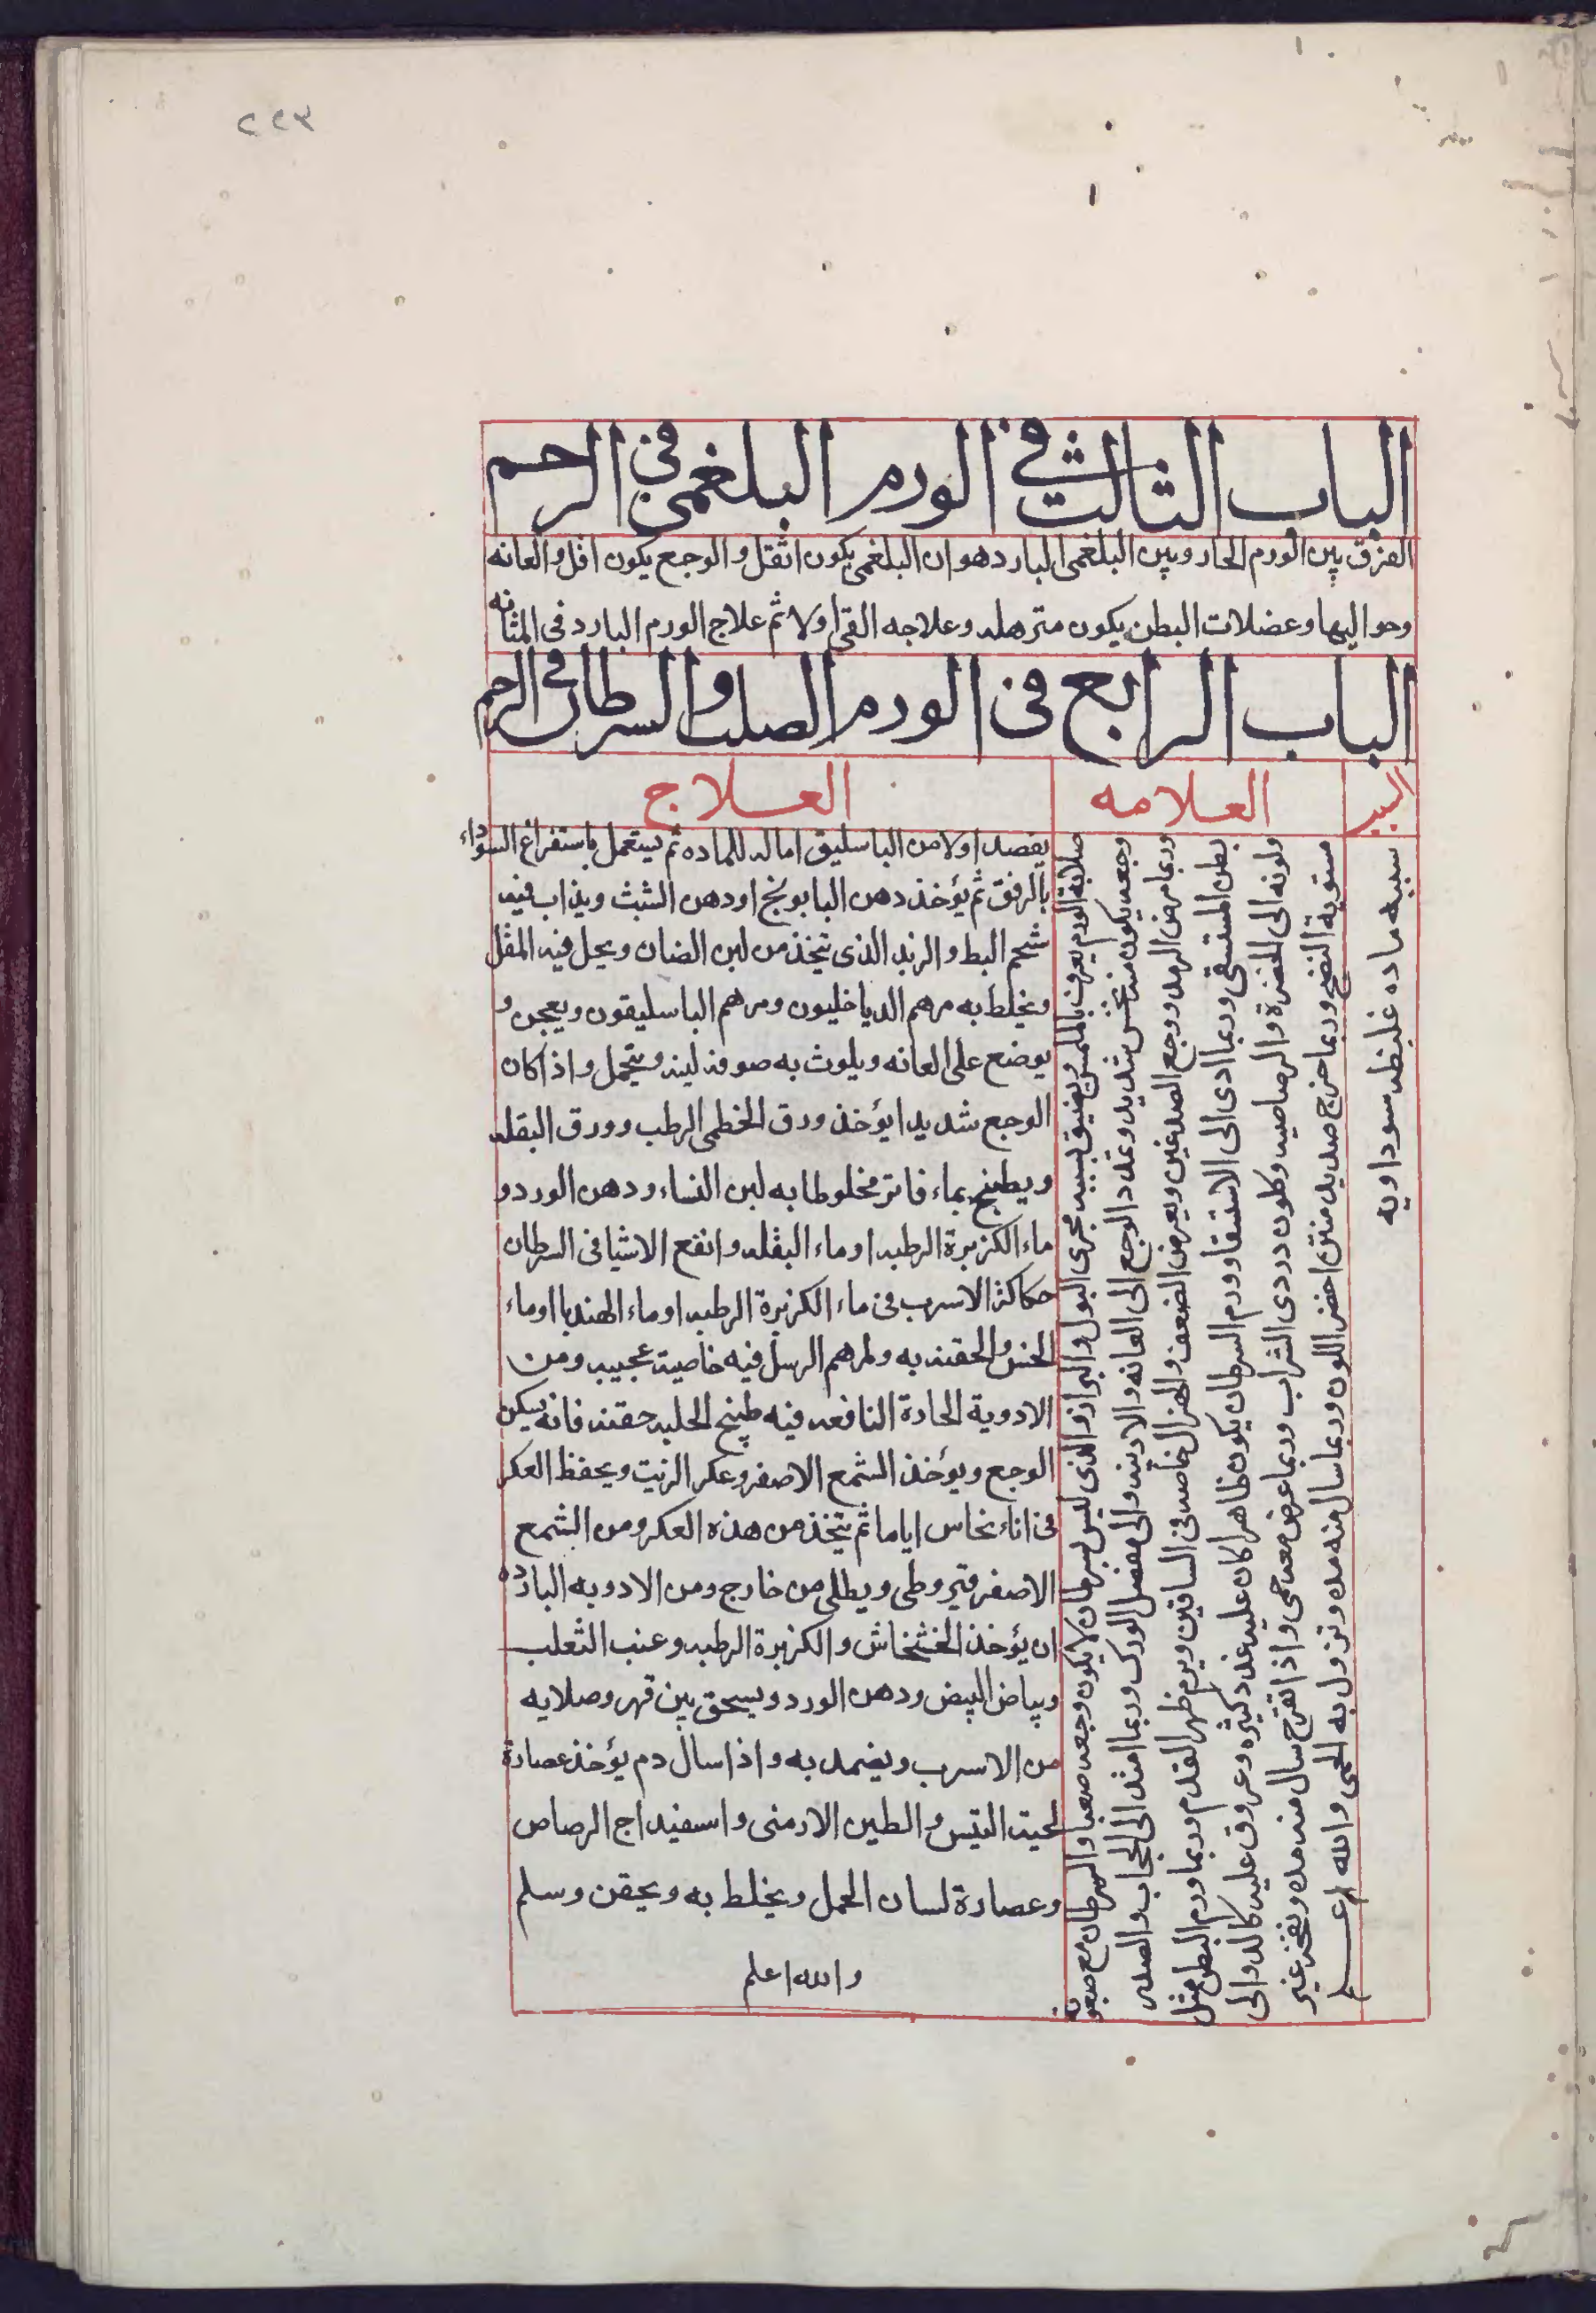 ٢٩٣
الباب الثالث في الورم البلغمى فى الرحم
الفرق بين الورم الحار وبين البلغمى البارد هو ان البلغمى يكون اثقل والوجع يكون اقل والعانه
وحواليها وعضلات البطن يكون مترهله وعلاجه القى اولا ثم علاج الورم البارد فى المثانه
الباب الرابع فى الورم الصلب والسرطان فى الرحم
السبب
العلامه
العلاج
سببه ماده غليظه سوداويه
صلابة الورم يعرف بالملمس ويضيق بسببه مجرى البول والبراز والذى ليس بسرطان لا يكون وجعه صعبا والسرطان مع صعوبة
وجعه يكون منه نخس شديد وتمدد الوجع الى العانه والاربيه والى مفصل الورك وربما امتد الى الحجاب والصدر
وربما مرض الرمد ووجع الصدغين ويعرض الضعف والهزال خاصه فى الساقين ويرم ظهر القدم وربما ورم البطن مثل
بطن المستسقى وربما ادى الى الاستسقا وورم السرطان يكون ظاهرا كان عليه غدد كثيره وعروق عليه كالدوالى
ولونه الى الخضرة والرصاصيه وكلون دردى الشراب وربما عرض معه حمى واذا تقرح سال منه مده وتقشر غير
مستوية النضج وربما خرج صديد منتن اخضر اللون وربما سال منه مده وتزول به الحمى والله اعلم
يفصد اولا من الباسليق اماله للماده ثم يستعمل باستفراغ السوداء
بالرفق ثم يؤخذ دهن البابونج او دهن الشبث ويذاب فيه
شحم البط والزبد الذى يتخذ من لبن الضان ويحل فيه المقل
ويخلط به مرهم الدياخليون ومرهم الباسليقون ويعجن و
يوضع على العانه ويلوث به صوفه لينه ويتحمل واذا كان
الوجع شديدا يؤخذ ورق الخطمى الرطب وورق البقله
ويطبخ بماء فاتر مخلوطا به لبن النساء ودهن الورد و
ماء الكزبرة الرطبه او ماء البقله وانفع الاشيا فى السرطان
حكاكة الاسرب فى ماء الكزبرة الرطبه او ماء الهندبا او ماء
الخس والحقنه به ولمرهم الرسل فيه خاصية عجيبه ومن
الادوية الحارة النافعه فيه طبيخ الحلبه حقنه فانه يسكن
الوجع ويؤخذ الشمع الاصفر وعكر الزيت ويحفظ العكر
فى اناء نحاس اياما ثم يتخذ من هذه العكر ومن الشمع
الاصفر قيروطى ويطلى من خارج ومن الادويه البارده
ان يؤخذ الخشخاش والكزبرة الرطبه وعنب الثعلب
وبياض البيض ودهن الورد ويسحق بين فهر وصلايه
من الاسرب ويضمد به واذا سال دم يؤخذ عصارة
لحية التيس والطين الارمنى واسفيداج الرصاص
وعصارة لسان الحمل ويخلط به ويحقن وسلم
والله اعلم